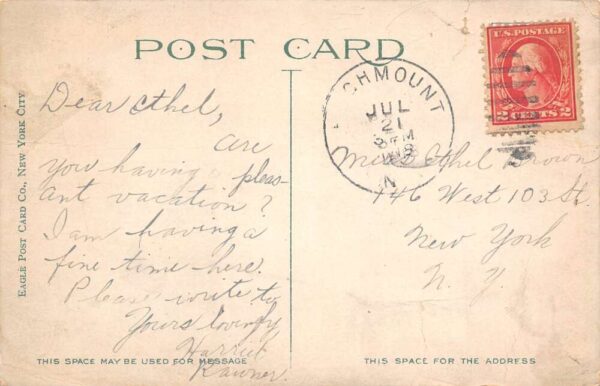 POST CARD
EAGLE POST CARD CO., NEW YORK CITY
Dear Ethel,
Are
you having a pleas-
ant vacation?
I am having a
fine time here.
Please write to
Yours lovingly
Harriet
THIS SPACE MAY BE USED FOR MESSAGE
CHMOUNT
JUL
21
3 PM
N
U.S. POSTAGE
2 CENTS 2
Miss Ethel Brown
146 West 103 St.
New York
N. Y.
THIS SPACE FOR THE ADDRESS